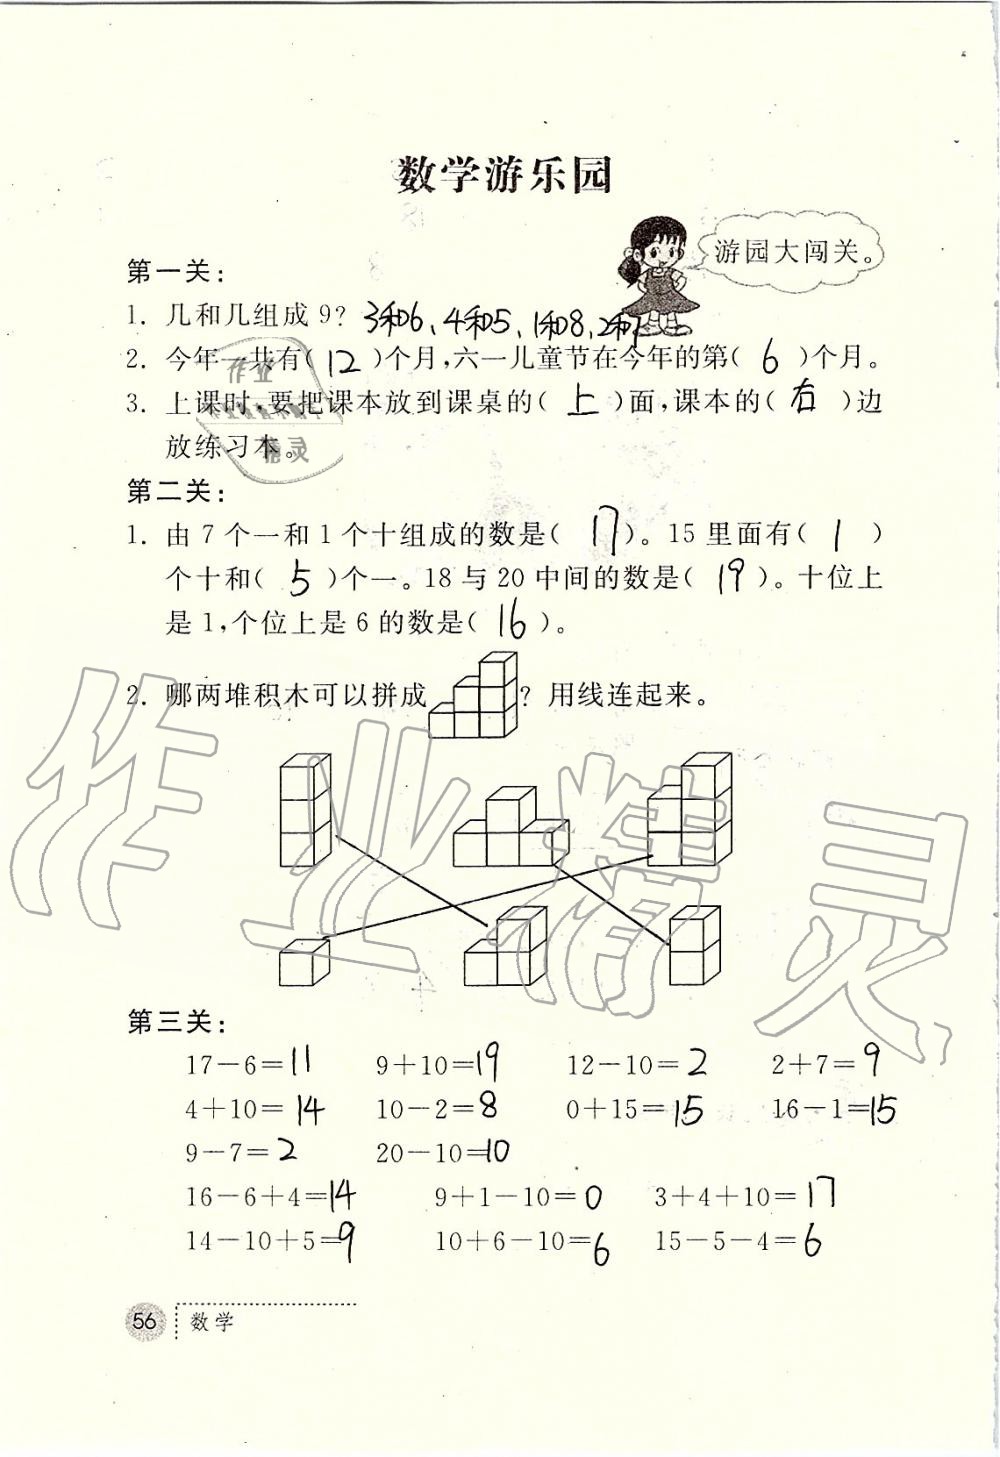 数学游乐园
游园大闯关。
第一关：
1. 几和几组成9？3和6、4和5、1和8、2和7
2. 今年一共有（12）个月，六一儿童节在今年的第（6）个月。
3. 上课时，要把课本放到课桌的（上）面，课本的（右）边
放练习本。
第二关：
1. 由7个一和1个十组成的数是（17）。15里面有（1）
个十和（5）个一。18与20中间的数是（19）。十位上
是1，个位上是6的数是（16）。
2. 哪两堆积木可以拼成？用线连起来。
第三关：
17－6＝11 9＋10＝19 12－10＝2 2＋7＝9
4＋10＝14 10－2＝8 0＋15＝15 16－1＝15
9－7＝2 20－10＝10
16－6＋4＝14 9＋1－10＝0 3＋4＋10＝17
14－10＋5＝9 10＋6－10＝6 15－5－4＝6
56 数学
作业精灵
作业
精灵